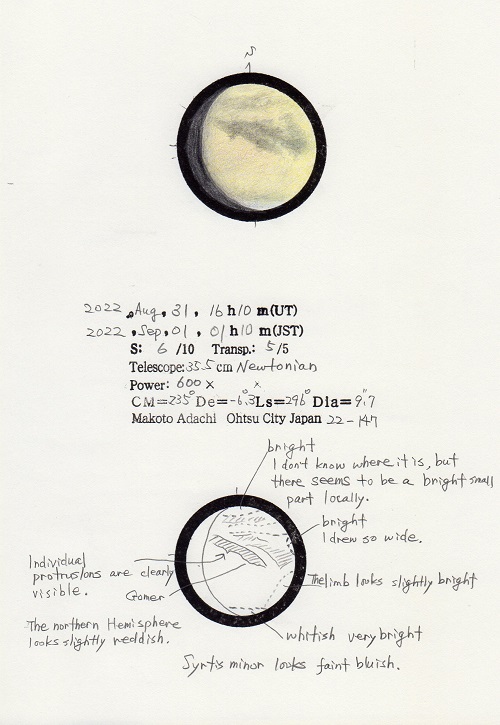 S
2022, Aug, 31, 16 h 10 m(UT)
2022, Sep, 01, 01 h 10 m(JST)
S: 6 /10 Transp.: 5/5
Telescope: 35.5 cm Newtonian
Power: 600 x x
CM=235° De=-6.3° Ls=296° Dia= 9.″7
Makoto Adachi Ohtsu City Japan 22-147
bright
I don't know where it is, but
there seems to be a bright small
part locally.
bright
I drew so wide.
Individual
protrusions are clearly
visible.
Gomer
The limb looks slightly bright
The northern Hemisphere
looks slightly reddish.
whitish very bright
Syrtis minor looks faint bluish.